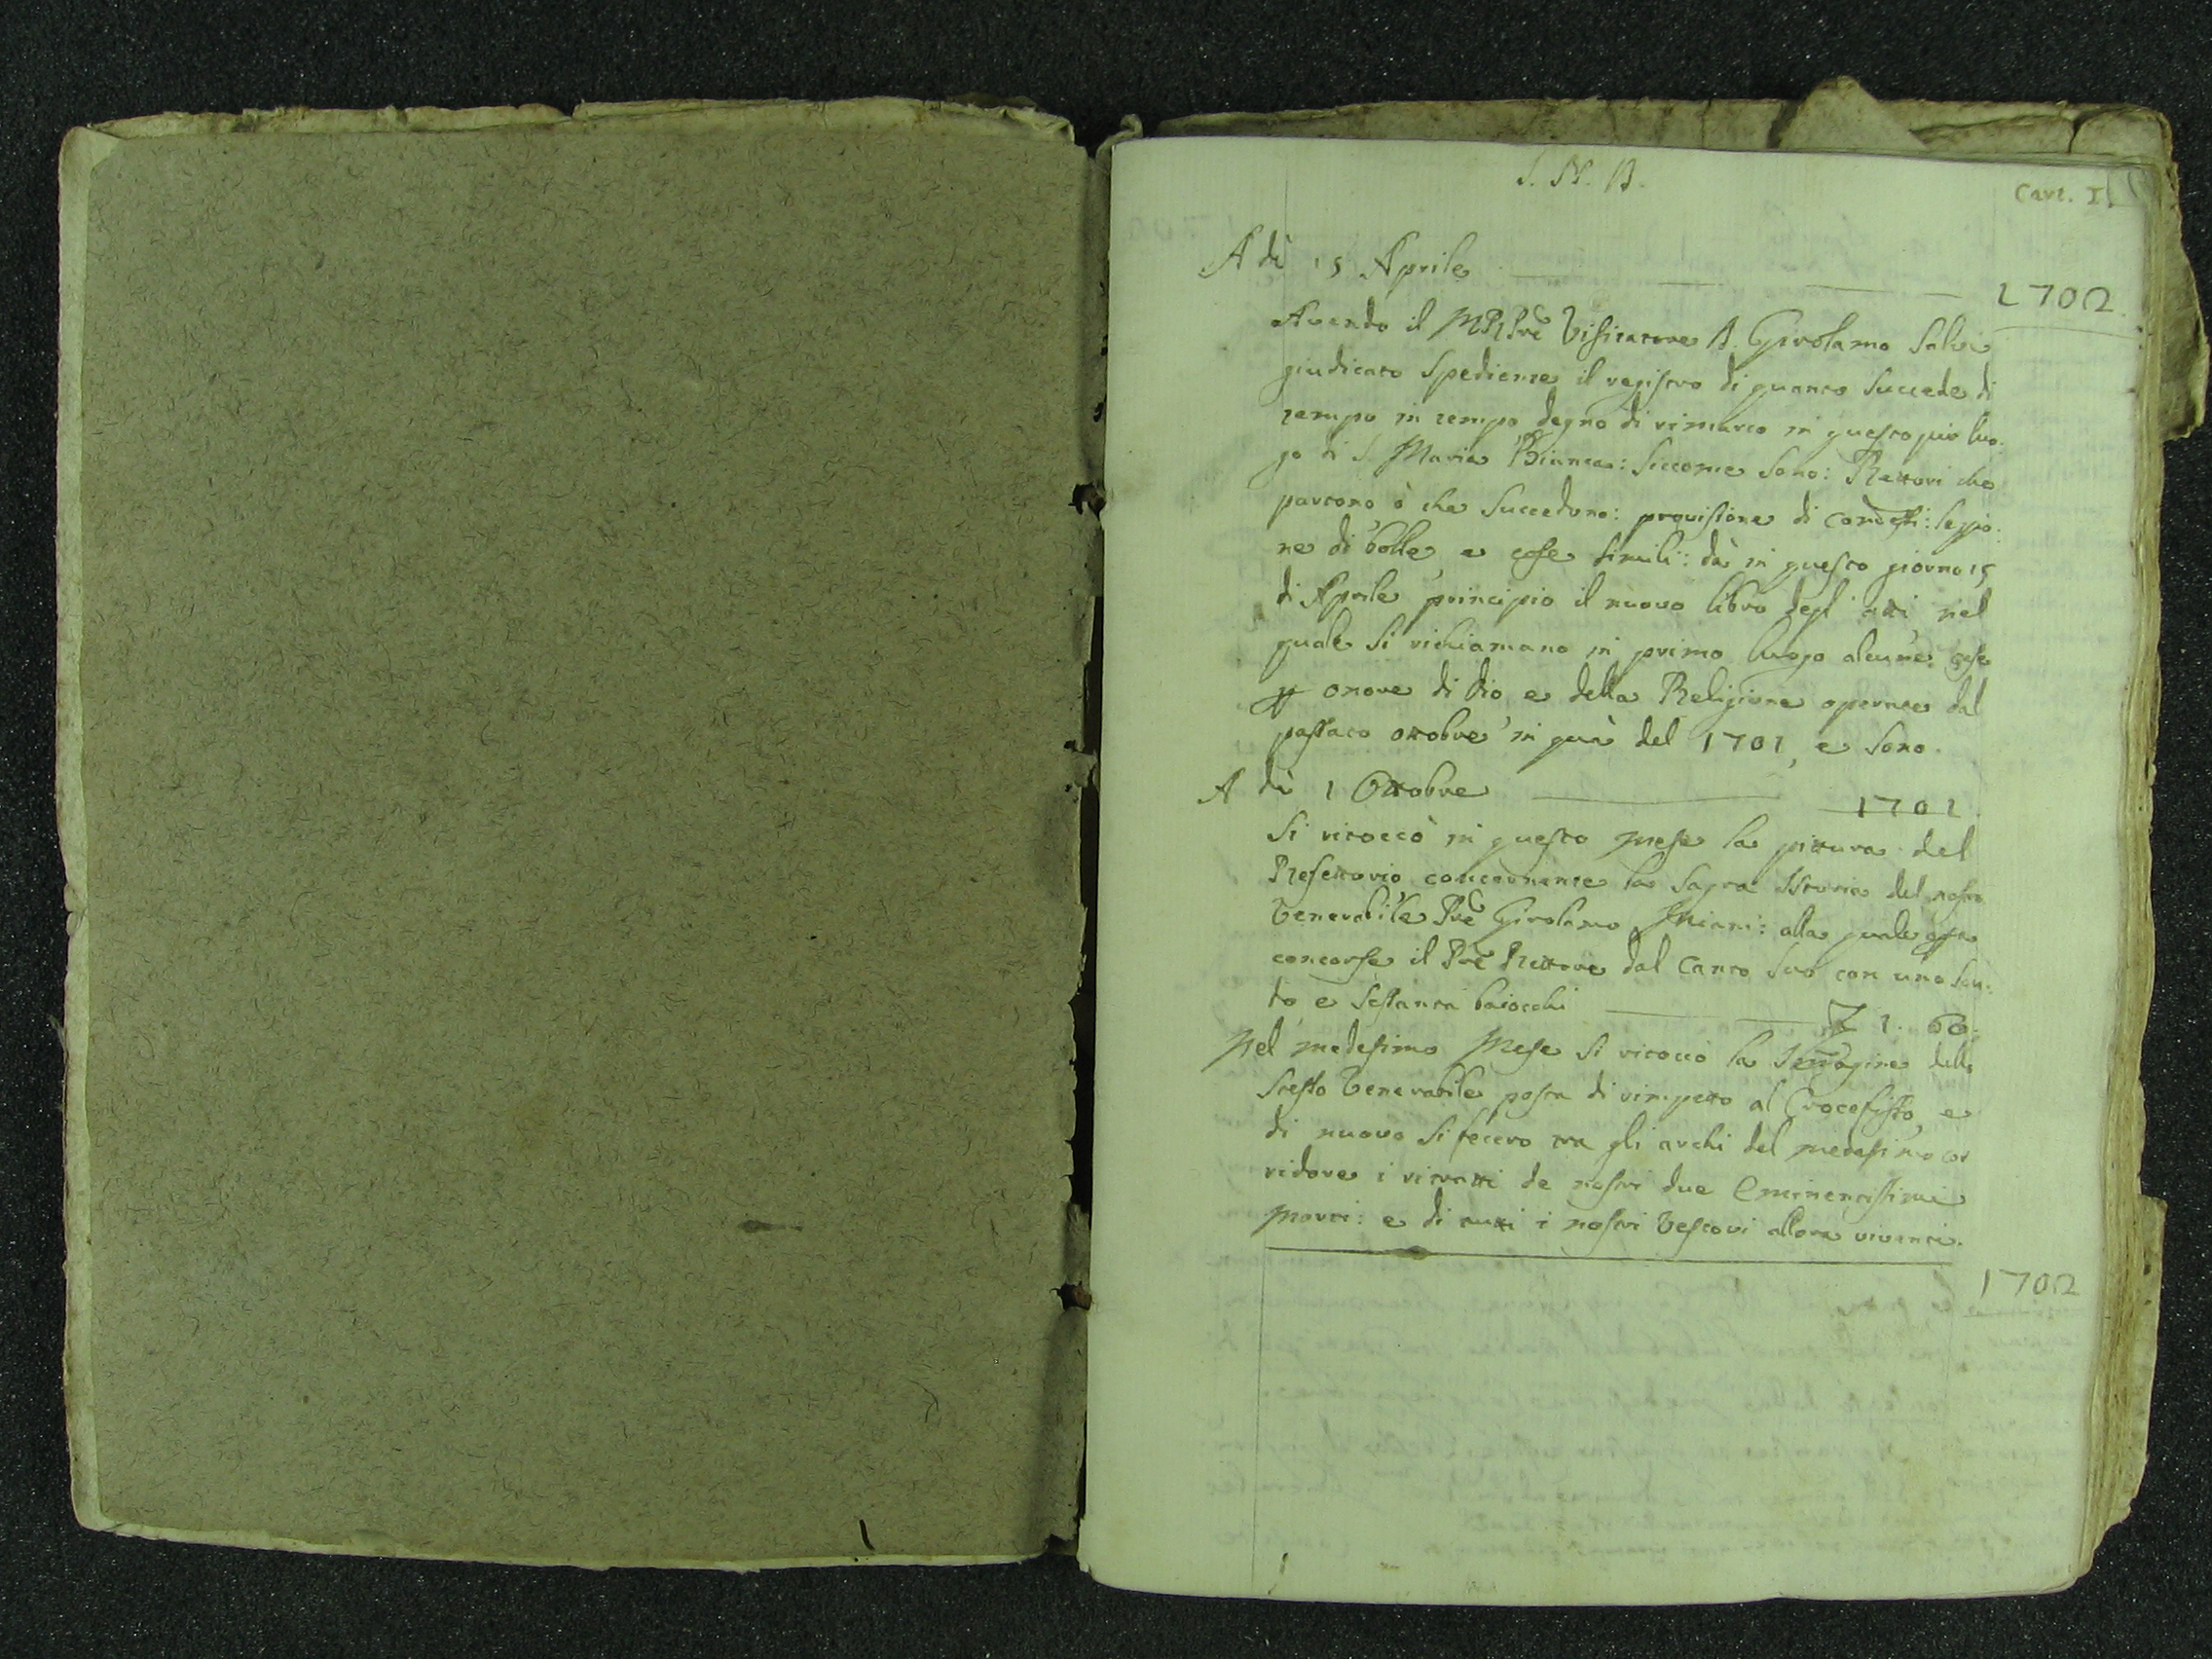 Cart. I.
A dì 15 Aprile
1702
Avendo il M R Pre Vissitatore D. Girolamo Salvi
giudicato spediente il registro di quanto succede di
tempo in tempo degno di rimarco in questo pio luo:
go di S. Maria Bianca: siccome sono: Rettori che
partono ò che succedono: provisione di
ne di bolle, e cose simili: dà in questo giorno 15
di Aprile principio il nuovo libro degl' atti nel
quale si richiamano in primo luogo alcune cose
onore di Dio e della Religione operate dal
passato ottobre in quà del 1701, e sono.
A dì 1 Ottobre
1701
Si ritoccò in questo mese la pittura del
Refettorio concernente la sagra Istoria del nostro
Venerabile Pre Girolamo Miani: alla quale
concorse il Pre Rettore dal canto suo con uno scu:
to e sessanta baiocchi
1. 60.
Nel medesimo Mese si ritoccò la Immagine dello
stesso Venerabile posta di rimpetto al Crocefisso, e
di nuovo si fecero tra gli archi del medesimo cor
ridore i ritratti de nostri due Eminentissimi
Morti: e di tutti i nostri Vescovi allora viventi.
1702